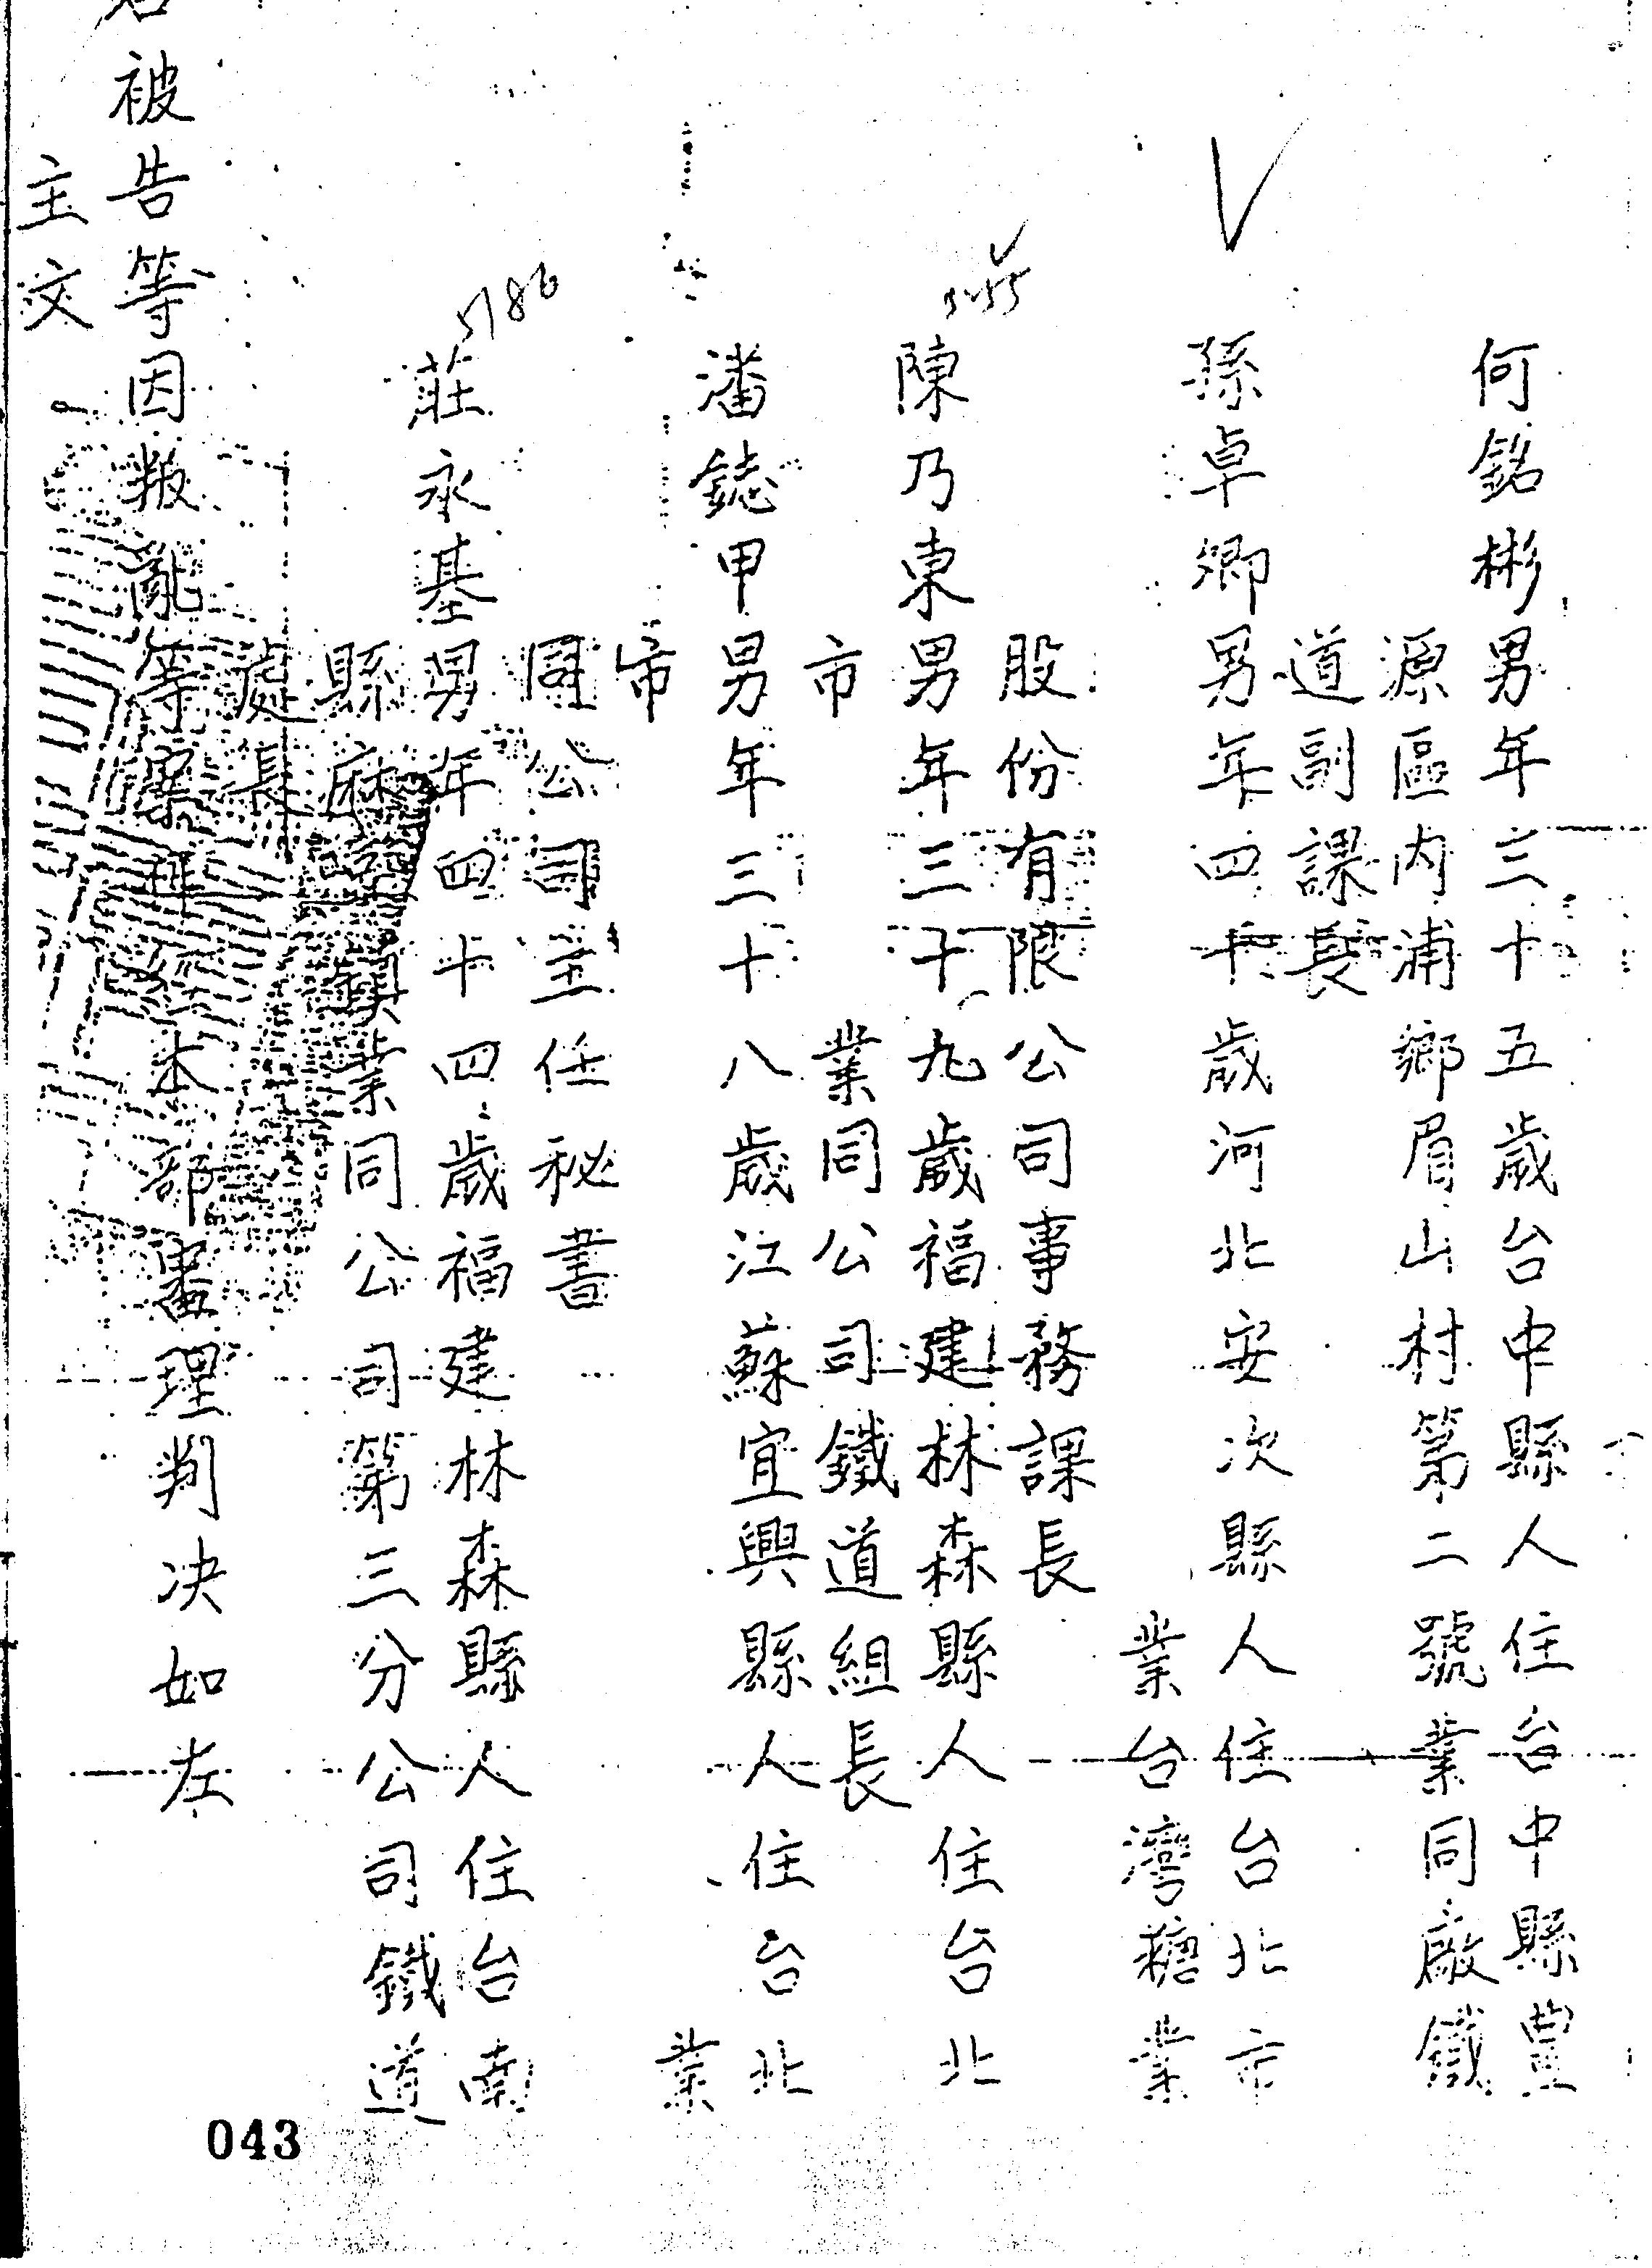 何銘彬男年三十五歲台中縣人住台中縣豐
源區內浦鄉眉山村第二號業同廠鐵
道副課長
孫卓卿男年四十歲河北安次縣人住台北市
業台灣糖業
股份有限公司事務課長
陳乃東男年三十九歲福建林森縣人住台北
市業同公司鐵道組長
潘鋕甲男年三十八歲江蘇宜興縣人住台北
市業
同公司主任秘書
莊永基男年四十四歲福建林森縣人住台南
縣麻豆鎮業同公司第三分公司鐵道
處長
右被告等因叛亂等案件經本部審理判決如左
主文
5786
043